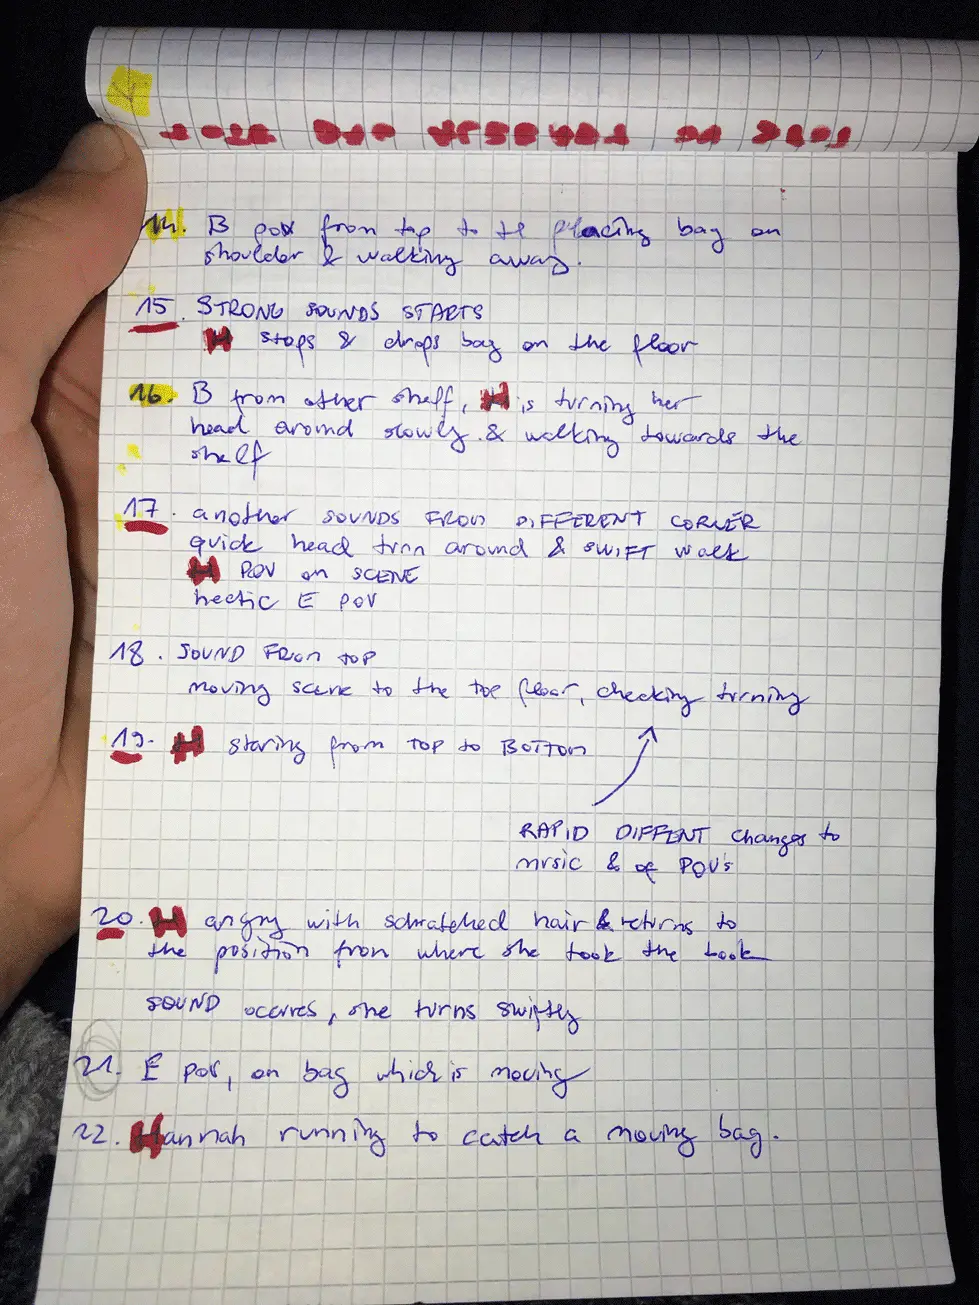 14. B POV from top to te placing bag on
shoulder & walking away.
15. STRONG SOUNDS STARTS
H stops & drops bag on the floor
16. B from other shelf, H is turning her
head around slowly & walking towards the
shelf
17. another SOUNDS FROM DIFFERENT CORNER
quick head turn around & SWIFT walk
H POV on SCENE
hectic E POV
18. SOUND FROM TOP
moving scene to the top floor, checking turning
19. H staring from TOP to BOTTOM
RAPID DIFFENT changes to
music & of POV's
20. H angry with scratched hair & returns to
the position from where she took the book
SOUND occures, she turns swiftly
21. E POV, on bag which is moving
22. Hannah running to catch a moving bag.